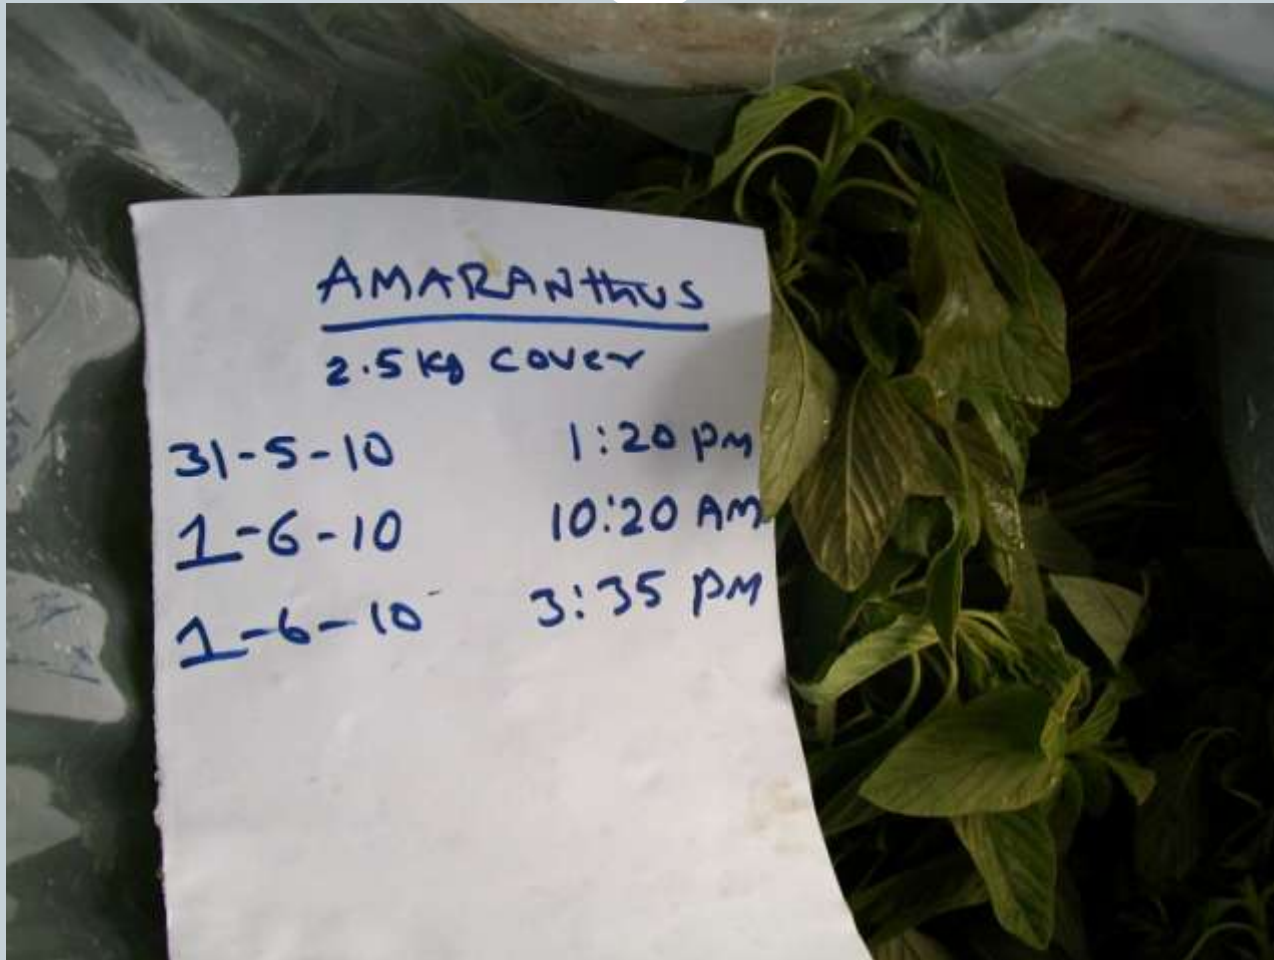 AMARANthUS
2.5 kg cover
31-5-10 1:20 PM
1-6-10 10:20 AM
1-6-10 3:35 PM